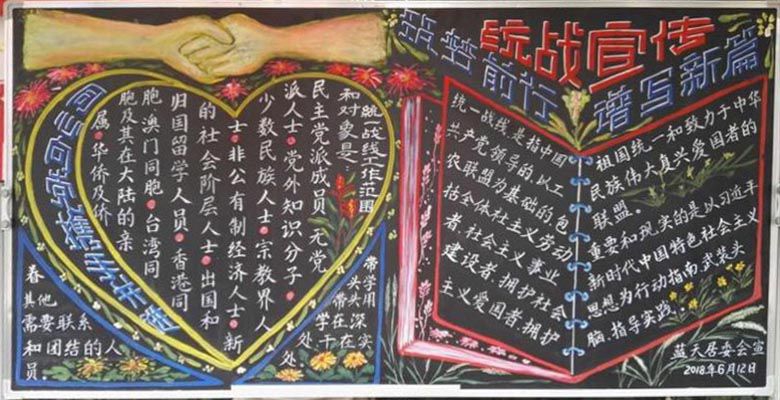 统战宣传
筑梦前行
谱写新篇
统一战线工作范围
和对象是:
民主党派成员。无党
派人士。党外知识分子。
少数民族人士。宗教界人
士。非公有制经济人士。新
的社会阶层人士。出国和
归国留学人员。香港同
胞澳门同胞。台湾同
胞及其在大陆的亲
属。华侨及侨
眷其他
需要联系
和团结的人
员。
带学用
头头深
带在实
学干在
处
处
统一战线是指中国
共产党领导的,以工
农联盟为基础的包
括全体社会主义劳动
者,社会主义事业
建设者,拥护社会
主义爱国者,拥护
祖国统一和致力于中华
民族伟大复兴爱国者的
联盟。
重要和现实的是以习近平
新时代中国特色社会主义
思想为行动指南,武装头
脑,指导实践。
蓝天居委会宣
2018.年6月12日